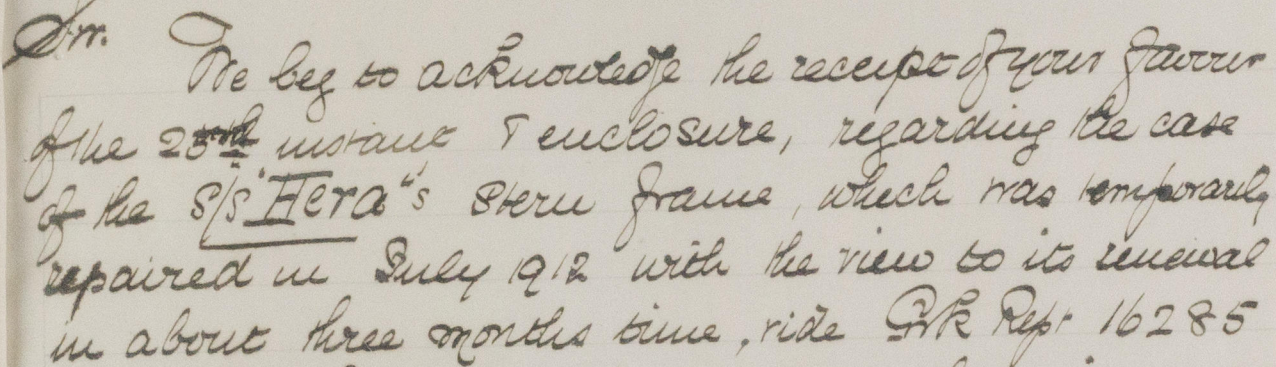 Sir.
We beg to acknowledge the receipt of your favour
of the 25th instant & enclosure, regarding the case
of the S/S "Hera"s Stern frame, which was temporarily
repaired in July 1912 with the view to its renewal
in about three months time, vide Gvk Rept 16285